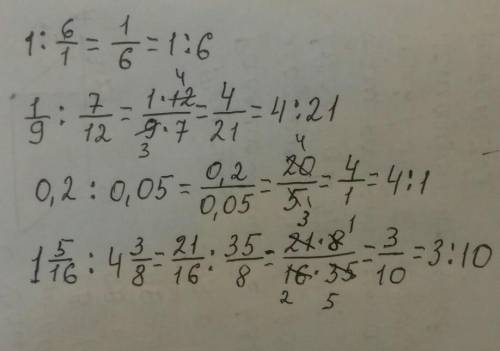 1 : 6/1 = 1/6 = 1 : 6
1/9 : 7/12 = 1·12/9·7 = 4/21 = 4 : 21
0,2 : 0,05 = 0,2/0,05 = 20/5 = 4/1 = 4 : 1
1 5/16 : 4 3/8 = 21/16 : 35/8 = 21·8/16·35 = 3/10 = 3 : 10